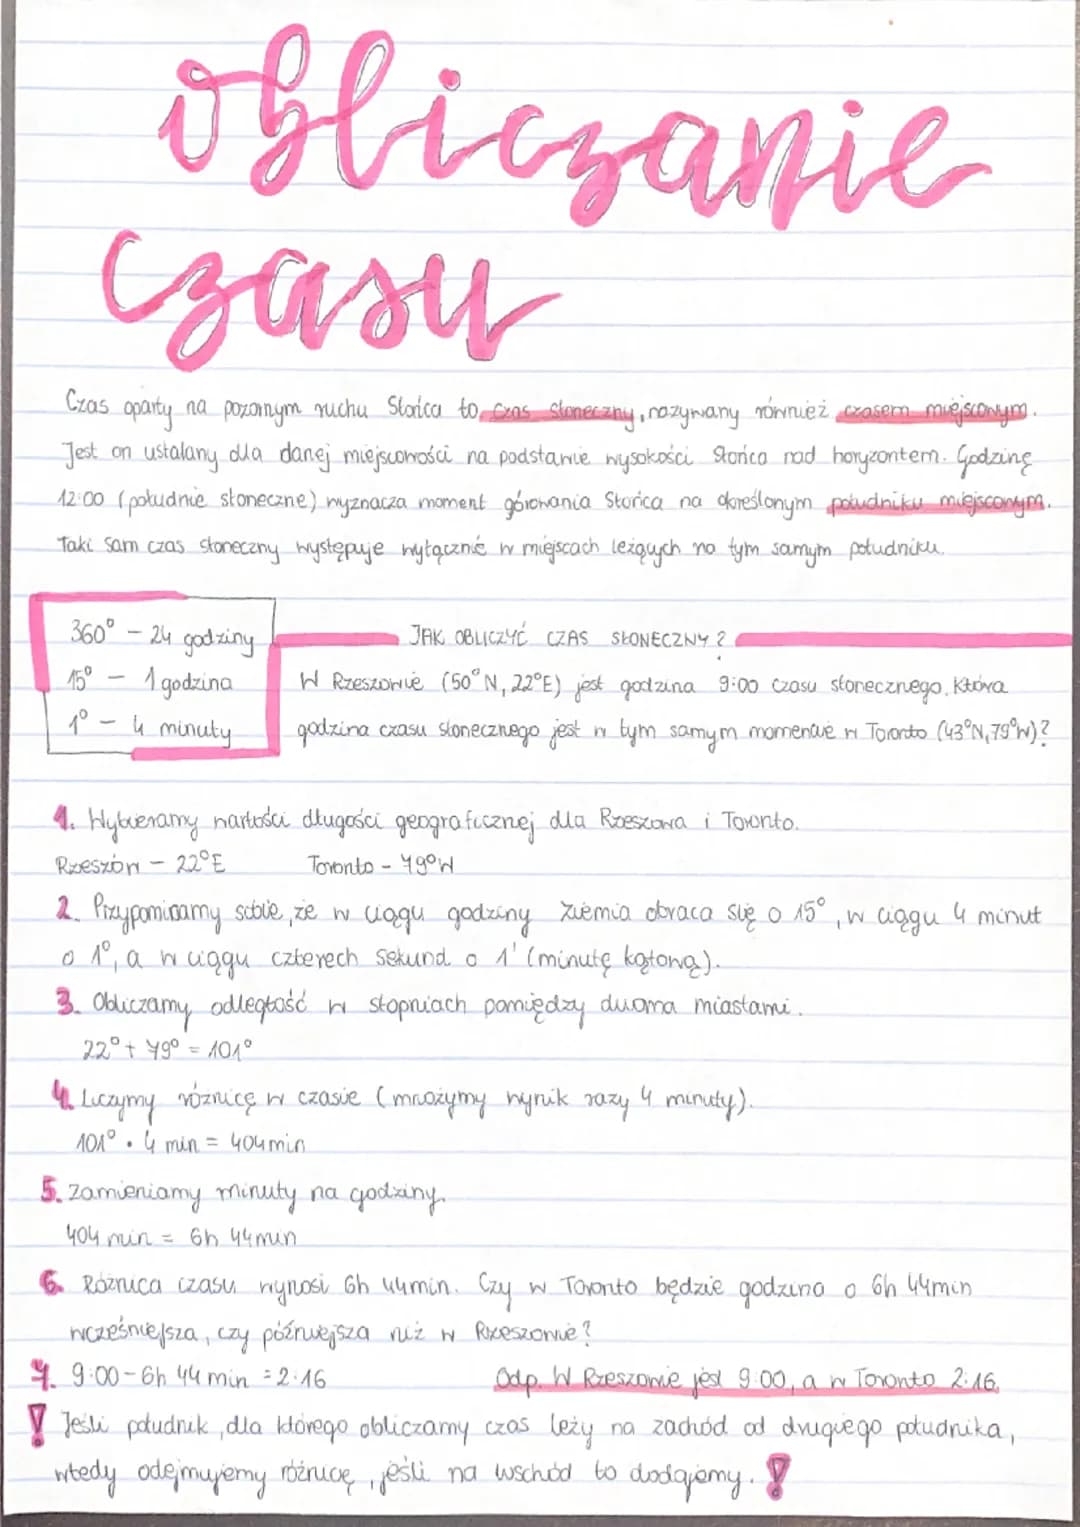 obliczanie
czasu
Czas oparty na pozornym ruchu Słońca to czas słoneczny, nazywany również czasem miejscowym.
Jest on ustalany dla danej miejscowości na podstawie wysokości Słońca nad horyzontem. Godzinę
12:00 (południe słoneczne) wyznacza moment górowania Słońca na określonym południku miejscowym.
Taki sam czas słoneczny występuje wyłącznie w miejscach leżących na tym samym południku.
360° - 24 godziny
15° - 1 godzina
1° - 4 minuty
JAK OBLICZYĆ CZAS SŁONECZNY?
W Rzeszowie (50°N, 22°E) jest godzina 9:00 czasu słonecznego. Która
godzina czasu słonecznego jest w tym samym momencie w Toronto (43°N, 79°W)?
1. Wybieramy wartości długości geograficznej dla Rzeszowa i Toronto.
Rzeszów - 22°E Toronto - 79°W
2. Przypominamy sobie, że w ciągu godziny Ziemia obraca się o 15°, w ciągu 4 minut
o 1°, a w ciągu czterech sekund o 1' (minutę kątową).
3. Obliczamy odległość w stopniach pomiędzy dwoma miastami.
22° + 79° = 101°
4. Liczymy różnicę w czasie (mnożymy wynik razy 4 minuty).
101° · 4 min = 404 min
5. Zamieniamy minuty na godziny.
404 min = 6h 44min
6. Różnica czasu wynosi 6h 44min. Czy w Toronto będzie godzina o 6h 44min
wcześniejsza, czy późniejsza niż w Rzeszowie?
7. 9:00 - 6h 44 min = 2:16 Odp. W Rzeszowie jest 9:00, a w Toronto 2:16.
! Jeśli południk, dla którego obliczamy czas leży na zachód od drugiego południka,
wtedy odejmujemy różnicę, jeśli na wschód to dodajemy. !